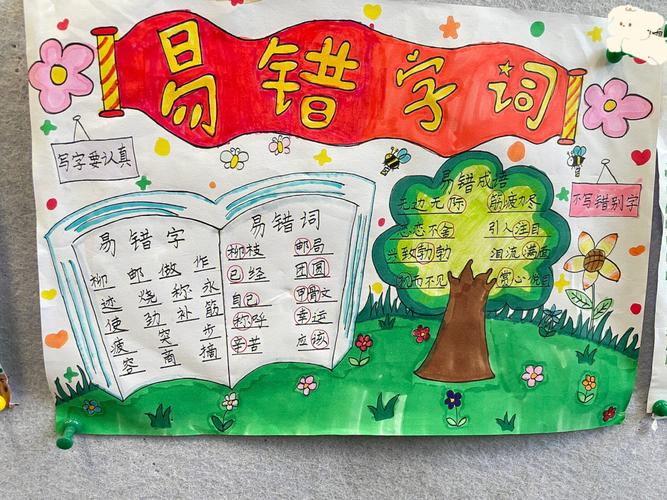 易错字词
写字要认真
不写错别字
易错字
柳 邮 做 作
迹 烧 称 永
使 劲 补 筋
疲 突 步
容 商 摘
易错词
柳枝 邮局
已经 团圆
自己 甲骨文
称呼 幸运
辛苦 应该
易错成语
无边无际 筋疲力尽
不舍 引人注目
兴致勃勃 泪流满面
不见 赏心悦目